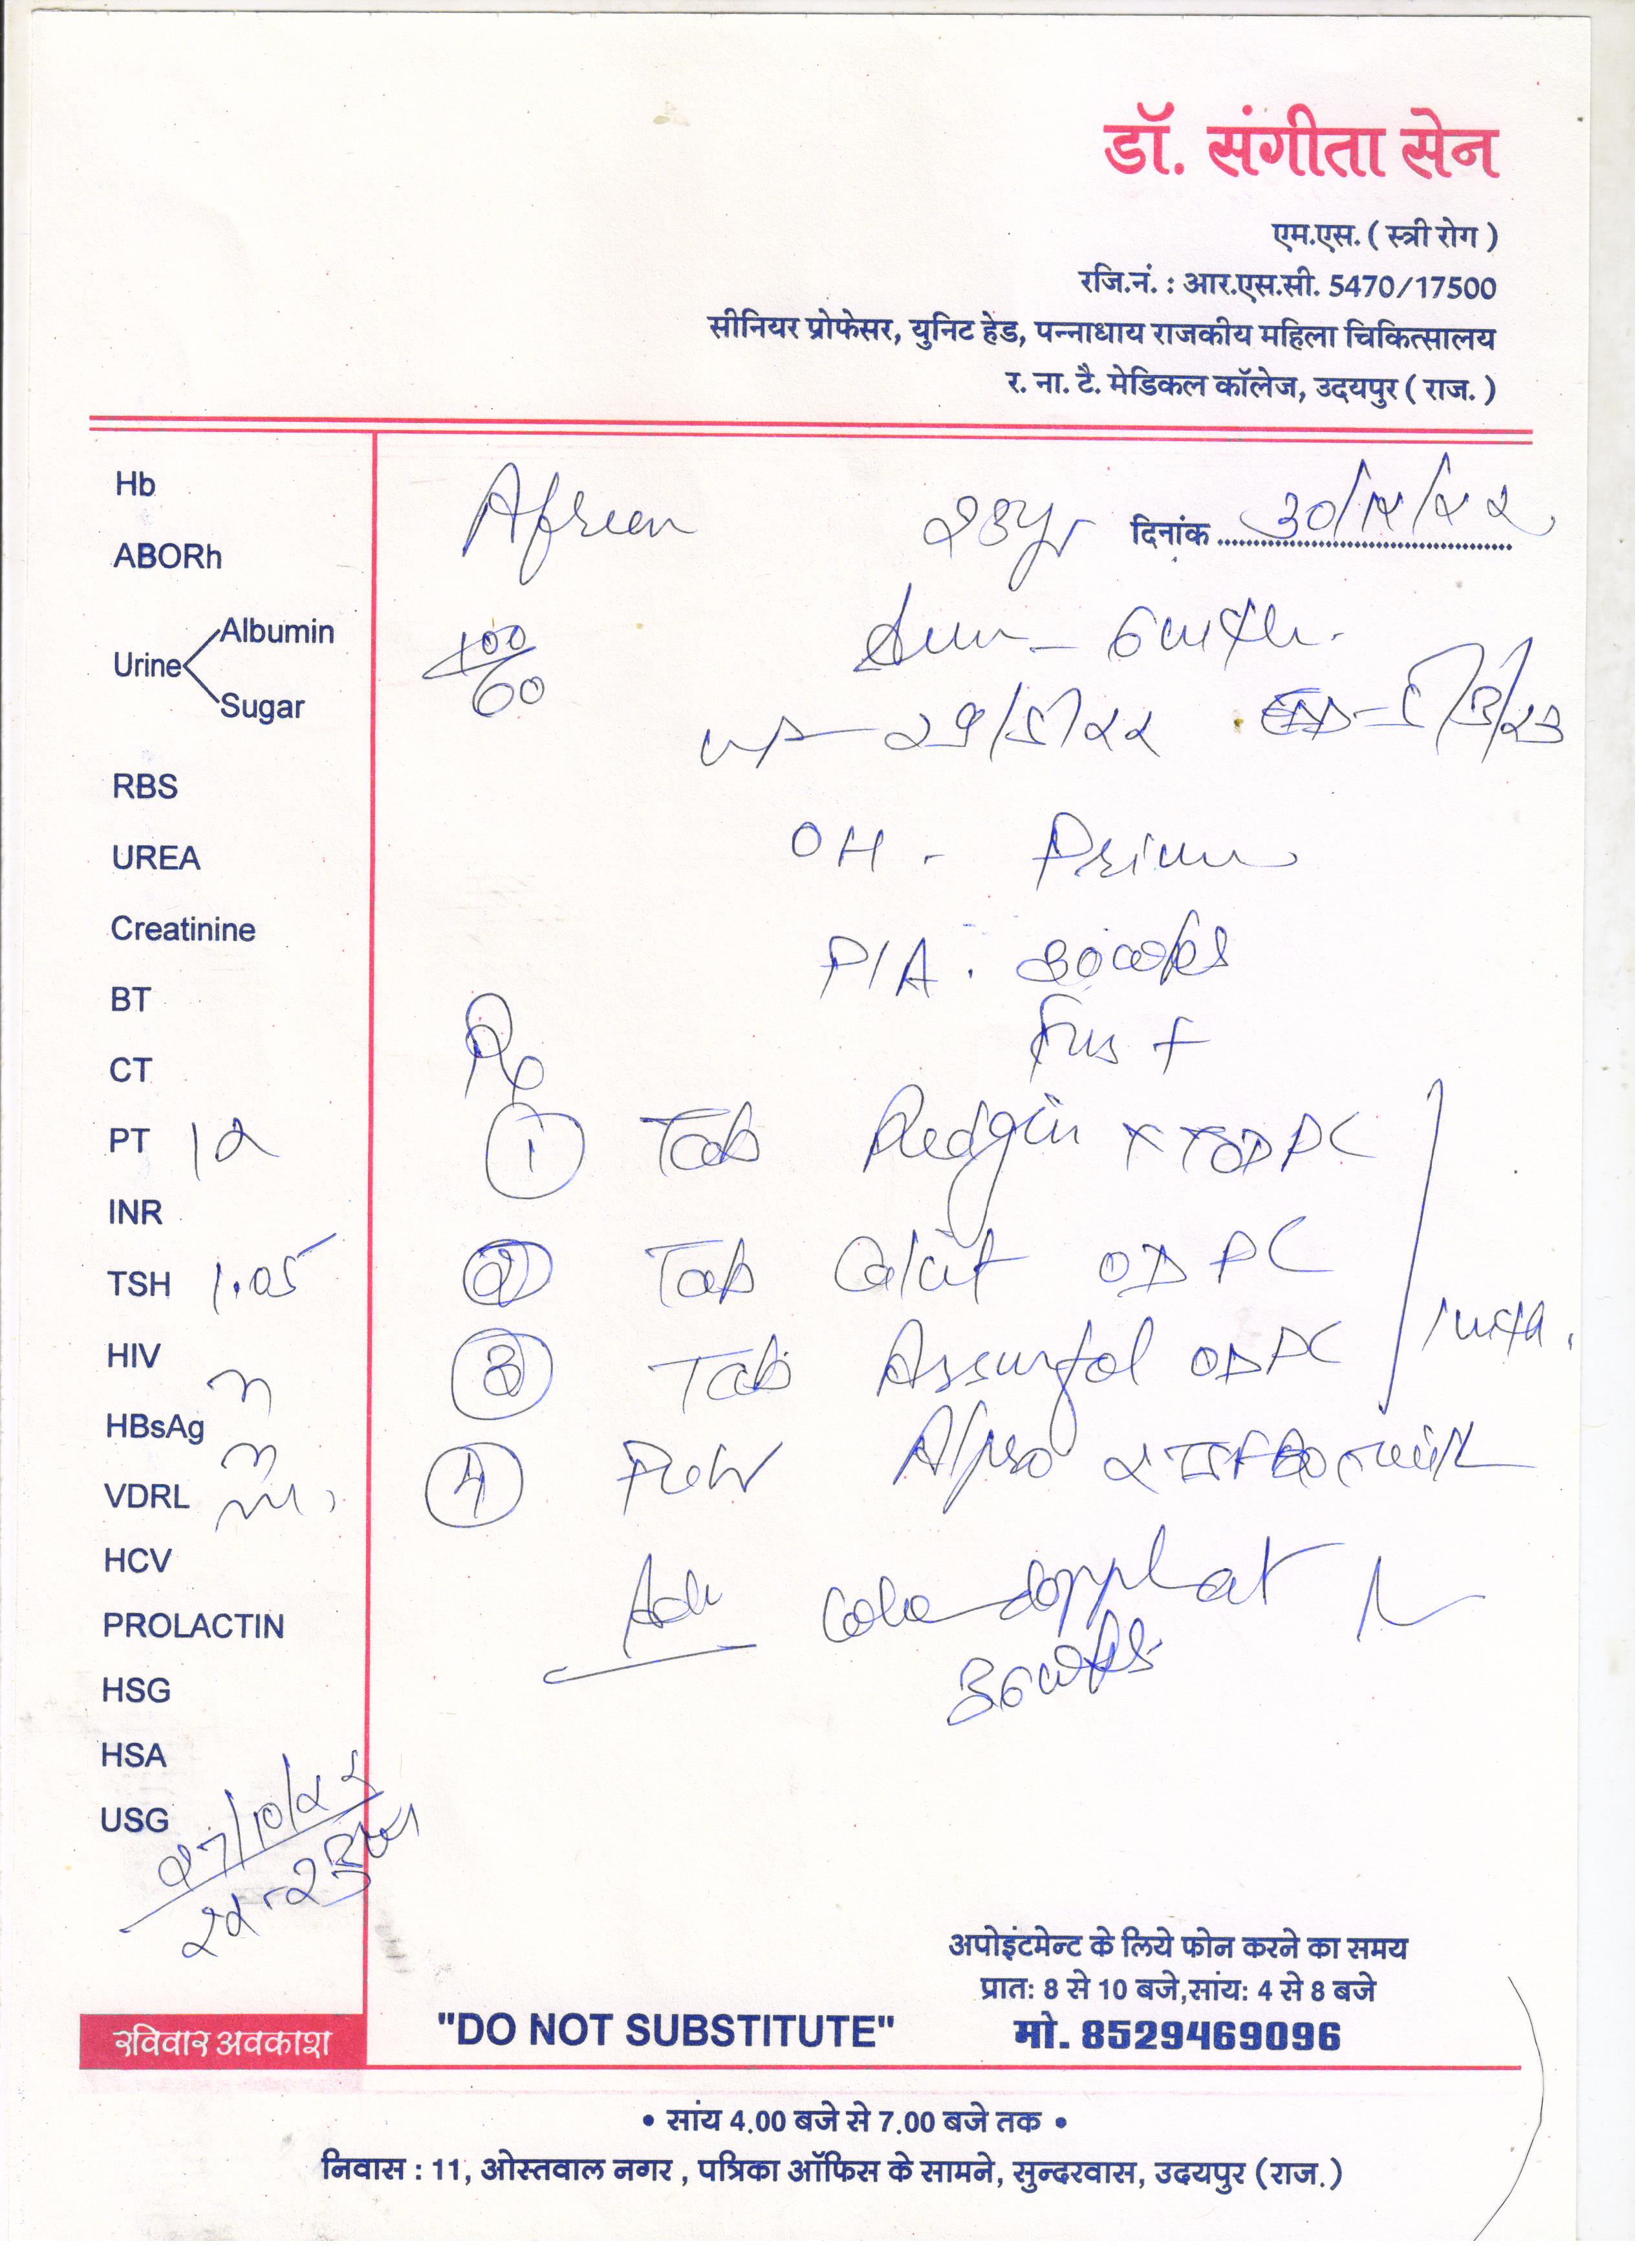 डॉ. संगीता सेन
एम.एस. ( स्त्री रोग )
रजि.नं. : आर.एस.सी. 5470/17500
सीनियर प्रोफेसर, युनिट हेड, पन्नाधाय राजकीय महिला चिकित्सालय
र. ना. टै. मेडिकल कॉलेज, उदयपुर ( राज. )
Afreen 23yr दिनांक 30/12/22
Hb
ABORh
Urine Albumin
Sugar
100/60
29/5/22 5/3/23
RBS
UREA
OH - Primi
Creatinine
P/A . 30wks
BT
FHS +
CT
Rx
PT 12
① Tab Redgin XT OD PC
INR
TSH 1.05
② Tab OD PC
HIV
③ Tab OD PC
HBsAg
VDRL
④ Alpro
HCV
Adv Color doppler at
36wks
PROLACTIN
HSG
HSA
USG 27/10/22
अपोइंटमेन्ट के लिये फोन करने का समय
प्रातः 8 से 10 बजे,सांयः 4 से 8 बजे
रविवार अवकाश "DO NOT SUBSTITUTE" मो. 8529469096
• सांय 4.00 बजे से 7.00 बजे तक •
निवास : 11, ओस्तवाल नगर , पत्रिका ऑफिस के सामने, सुन्दरवास, उदयपुर (राज.)